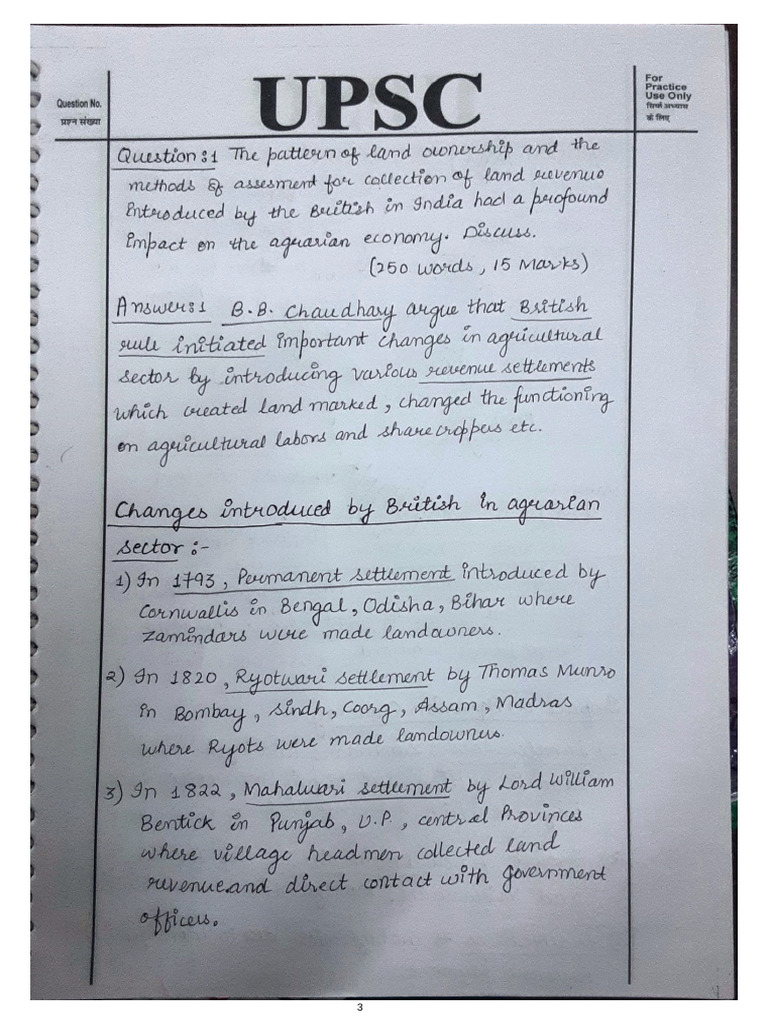 Question No.
प्रश्न संख्या
UPSC
For
Practice
Use Only
सिर्फ अभ्यास
के लिए
Question:1 The pattern of land ownership and the
methods of assesment for collection of land revenue
introduced by the British in India had a profound
impact on the agrarian economy. Discuss.
(250 words, 15 Marks)
Answer:1 B.B. Chaudhary argue that British
rule initiated important changes in agricultural
sector by introducing various revenue settlements
which created land marked, changed the functioning
on agricultural labors and sharecroppers etc.
Changes introduced by British in agrarian
sector :-
1) In 1793, Permanent settlement introduced by
Cornwallis in Bengal, Odisha, Bihar where
zamindars were made landowners.
2) In 1820, Ryotwari settlement by Thomas Munro
in Bombay, Sindh, Coorg, Assam, Madras
where Ryots were made landowners.
3) In 1822, Mahalwari settlement by Lord William
Bentick in Punjab, U.P., central Provinces
where village headmen collected land
revenue and direct contact with government
officers.
3